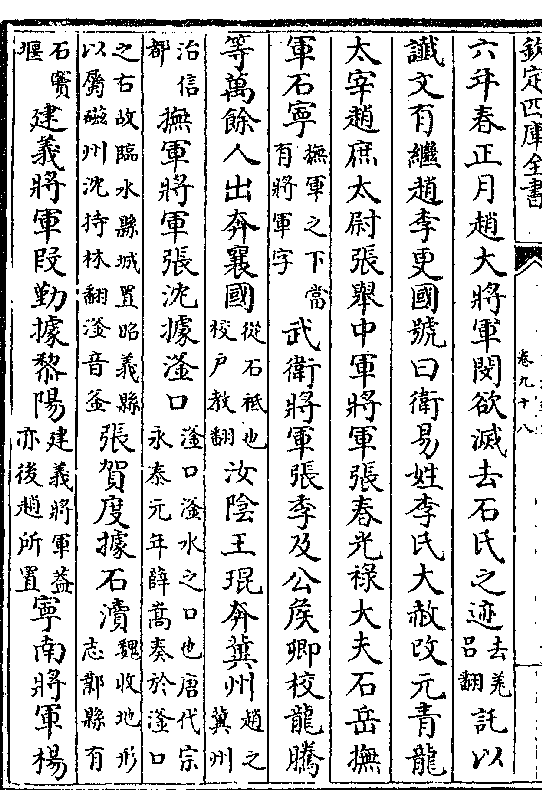 欽定四庫全書
卷九十八
六年春正月趙大將軍閔欲滅去石氏之迹去羌呂翻託以
讖文有繼趙李更國號曰衛易姓李氏大赦改元青龍
太宰趙庶太尉張舉中軍將軍張春光祿大夫石岳撫
軍石寧撫軍之下當有將軍字武衛將軍張季及公侯卿校龍騰
等萬餘人出奔襄國從石祗也校戶教翻汝陰王琨奔冀州趙之冀州
治信都撫軍將軍張沈據滏口滏口滏水之口也唐代宗永泰元年薛嵩奏於滏口
之右故臨水縣城置昭義縣以屬磁州沈持林翻滏音釜張賀度據石瀆魏收地形志鄴縣有
石竇堰建義將軍段勤據黎陽建義將軍蓋亦後趙所置寧南將軍楊